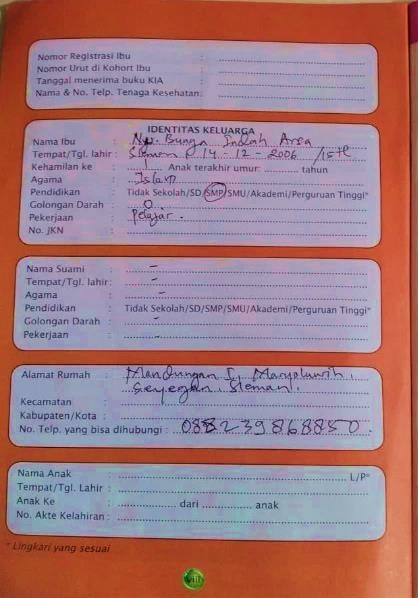 Nomor Registrasi Ibu :
Nomor Urut di Kohort Ibu :
Tanggal menerima buku KIA :
Nama & No. Telp. Tenaga Kesehatan:
IDENTITAS KELUARGA
Nama Ibu : Ny. Bunga Indah Arsa
Tempat/Tgl. lahir : Sleman 14 - 12 - 2006 /15th
Kehamilan ke : 1 Anak terakhir umur: tahun
Agama : Islam
Pendidikan : Tidak Sekolah/SD/SMP/SMU/Akademi/Perguruan Tinggi*
Golongan Darah : O
Pekerjaan : Pelajar .
No. JKN :
Nama Suami : –
Tempat/Tgl. lahir : –
Agama : –
Pendidikan : Tidak Sekolah/SD/SMP/SMU/Akademi/Perguruan Tinggi*
Golongan Darah : –
Pekerjaan : –
Alamat Rumah : Mandungan I,
Seyegan, Sleman.
Kecamatan :
Kabupaten/Kota :
No. Telp. yang bisa dihubungi : 
Nama Anak : L/P*
Tempat/Tgl. Lahir :
Anak Ke : dari anak
No. Akte Kelahiran :
* Lingkari yang sesuai